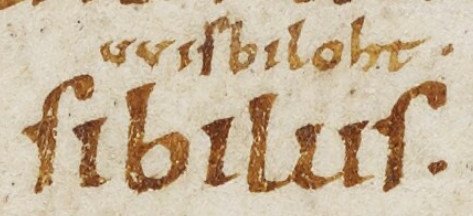 uuisbiloht.
sibilus.